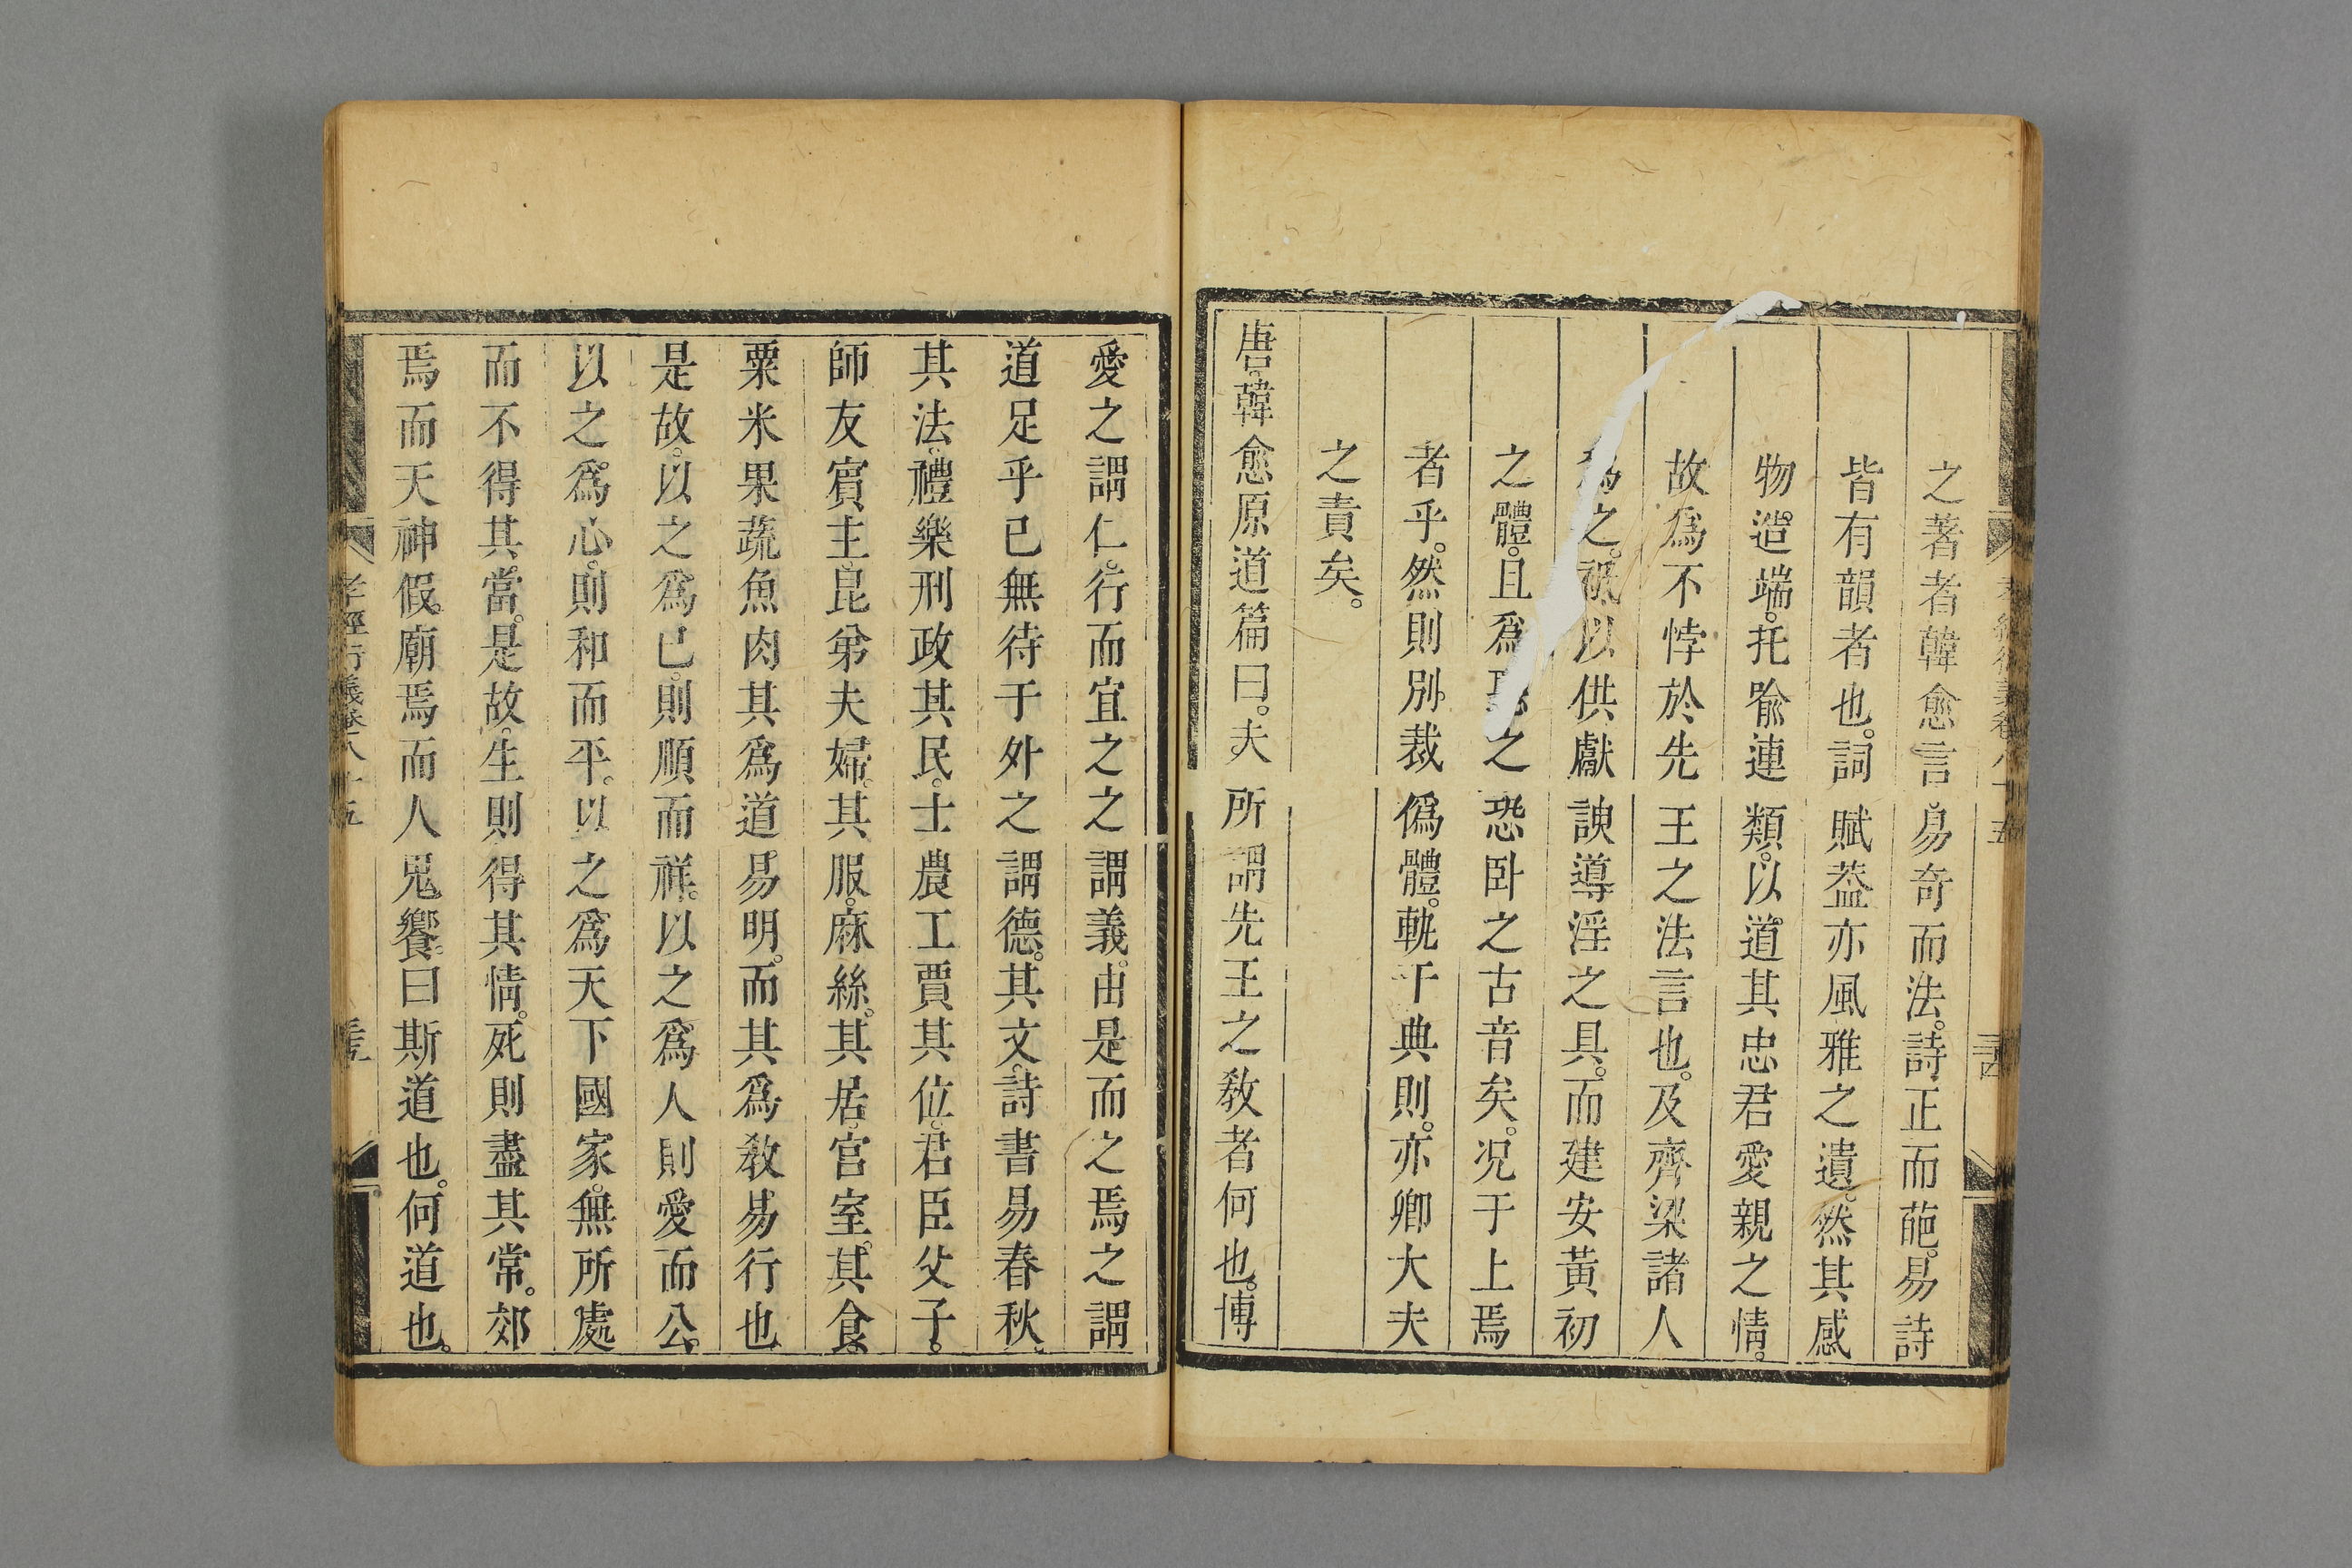 之著者韓愈言易奇而法。詩正而葩。易詩
皆有韻者也。詞賦葢亦風雅之遺。然其感
物。造端。托喻連類。以道其忠君愛親之情。
故爲不悖於先王之法言也。及齊梁諸人
爲之。祇以供獻諛導淫之具。而建安黃初
之體。且爲聽之恐卧之古音矣。况于上焉
者乎。然則別裁僞體。軌于典則。亦卿大夫
之責矣。
唐。韓愈原道篇曰。夫所謂先王之敎者何也。博
愛之謂仁。行而宜之之謂義。由是而之焉之謂
道足乎已無待于外之謂德。其文。詩書易春秋。
其法。禮樂刑政其民。士農工賈其位。君臣父子。
師友賓主。昆弟夫婦。其服。麻絲。其居。宮室。其食。
粟米果蔬魚肉其爲道。易明。而其爲敎易行也
是故。以之爲已。則順而祥。以之爲人則愛而公。
以之爲心。則和而平。以之爲天下國家。無所處
而不得其當。是故。生則得其情。死則盡其常。郊
焉而天神假。廟焉而人鬼饗。曰斯道也。何道也。
孝經衍義卷八十五